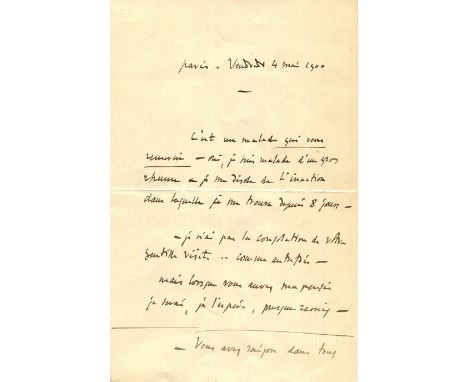 Paris - Vendredi 4 mai 1900
C'est un malade qui vous
remercie - oui, je suis malade d'un gros
rhume et je me désole de l'inaction
dans laquelle je me trouve depuis 8 jours -
- je n'ai pas la consolation de votre
gentille visite .. comme autrefois -
mais lorsque vous aurez ma pensée
je serai, je l'espère, presque
- Vous avez raison dans tous